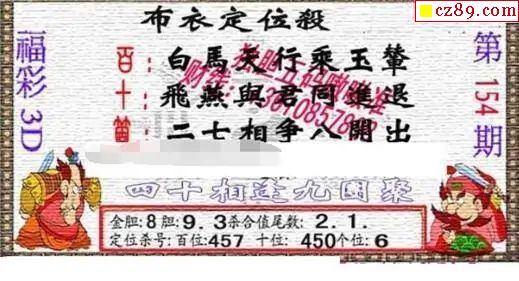 cz89.com
布衣定位殺
福彩3D
第154期
百:白馬天行乘玉輦
十:飛燕與君同進退
二七相争八開出
四十相逢九團聚
金胆:8胆:9.3杀合值尾数:2.1.
定位杀号:百位:457 十位:450个位:6